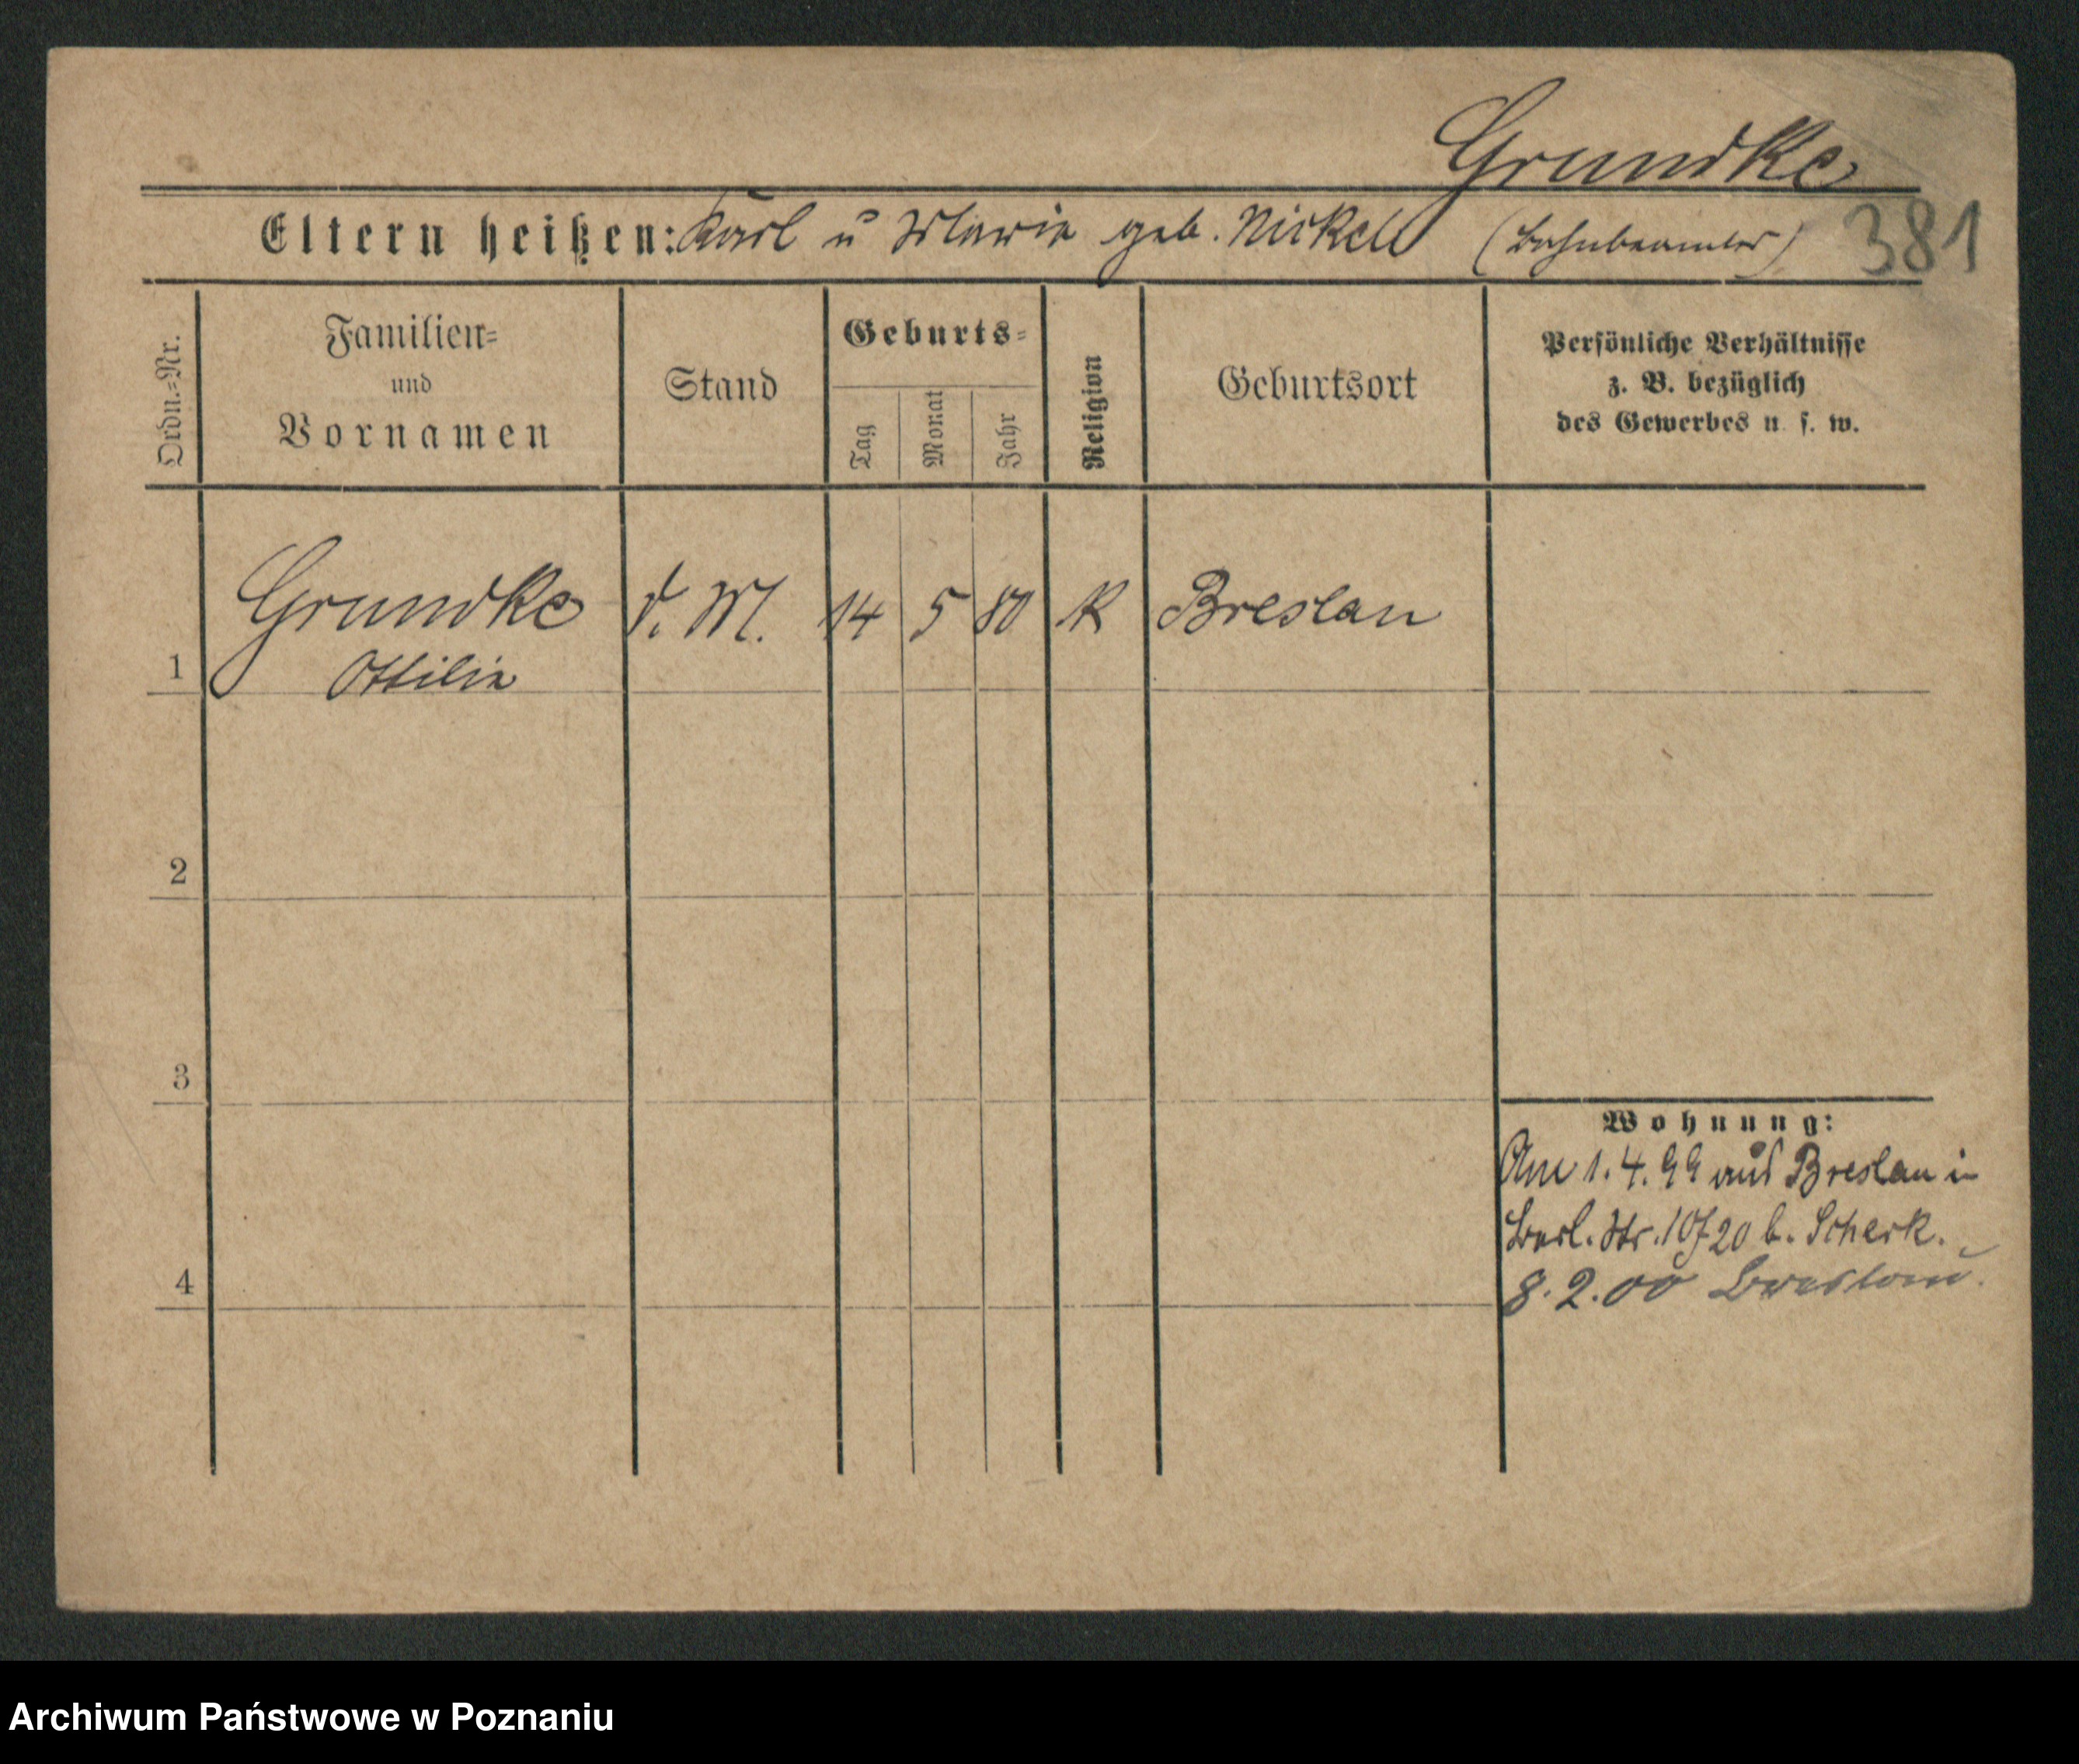 Grundke
Eltern heißen: Karl u Marie geb. Nickell (Bahnbeamter) 381
Ordn.=Nr.
Familien=
und
Vornamen
Stand
Geburts=
Tag
Monat
Jahr
Religion
Geburtsort
Persönliche Verhältnisse
z. B. bezüglich
des Gewerbes u. s. w.
1 Grundke d. M. 14 5 80 K Breslau
Ottilie
2
3
Wohnung:
Am 1.4.99 aus Breslau in
Berl. Str. 20 b. Scherk.
4
8.2.00 Breslau.
Archiwum Państwowe w Poznaniu